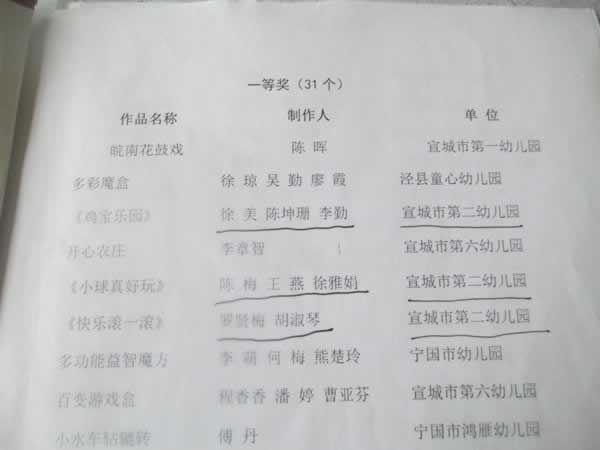 一等奖（31个）
作品名称 制作人 单 位
皖南花鼓戏 陈 晖 宣城市第一幼儿园
多彩魔盒 徐 琼 吴 勤 廖 霞 泾县童心幼儿园
《鸡宝乐园》 徐 美 陈坤珊 李勤 宣城市第二幼儿园
开心农庄 李章智 宣城市第六幼儿园
《小球真好玩》 陈 梅 王 燕 徐雅娟 宣城市第二幼儿园
《快乐滚一滚》 罗贤梅 胡淑琴 宣城市第二幼儿园
多功能益智魔方 李 萌 何 梅 熊楚玲 宁国市幼儿园
百变游戏盒 程香香 潘 婷 曹亚芬 宣城市第六幼儿园
小水车轱辘转 傅 丹 宁国市鸿雁幼儿园